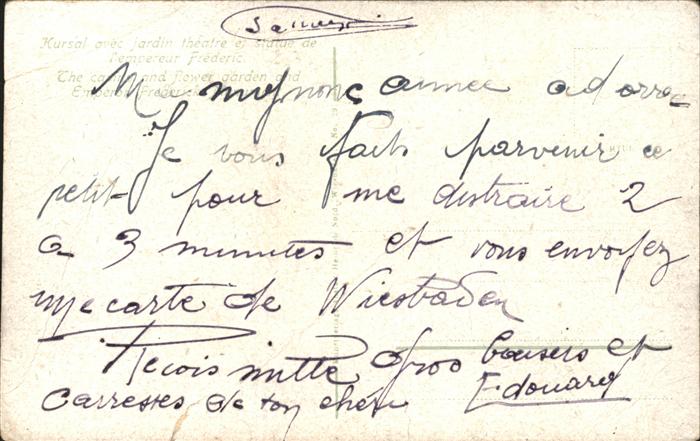 Samedi
Kursal avec jardin théatre et statue de
l'empereur Fréderic.
The and flower garden and
Emperor Frederic
Ma mignonne aimée adorée
Je vous fait parvenir ce
petit pour me distraire 2
a 3 minutes et vous envoyez
une carte de Wiesbaden
Recois mille gros baisers et
Carresses de ton chéri Edouard